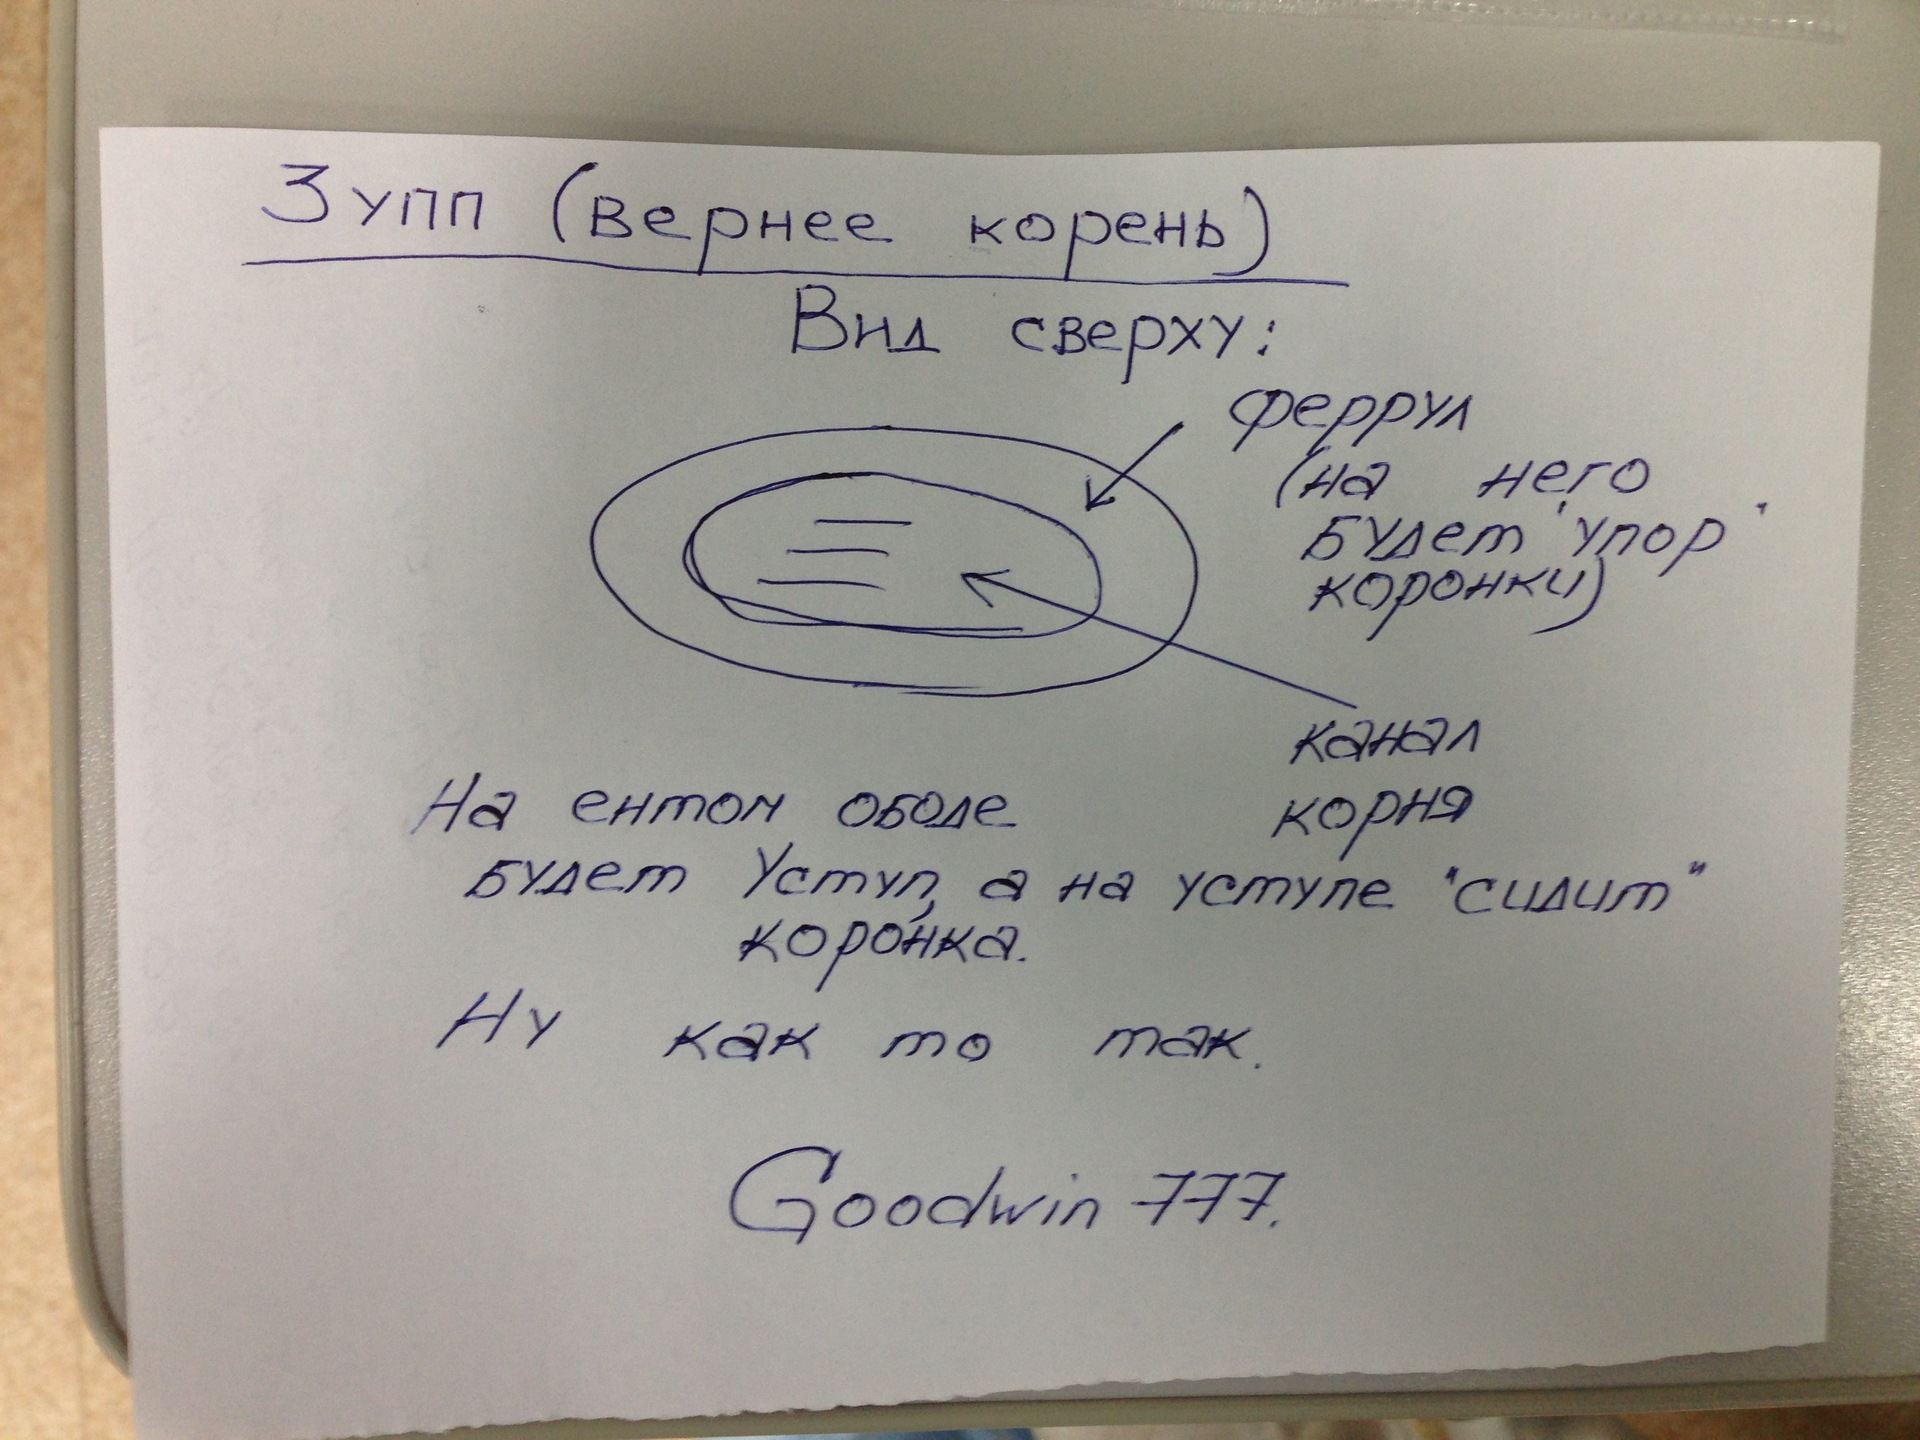 Зупп (вернее корень)
Вид сверху:
феррул
(на него
будет "упор"
коронки)
канал
корня
На ентом ободе
будет Уступ, а на уступе "сидит"
коронка.
Ну как то так.
Goodwin 777.